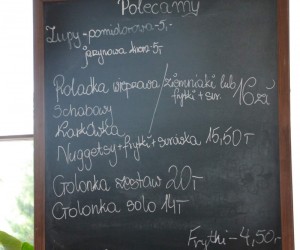 Polecamy
Zupy - pomidorowa - 5,-
jarzynowa 5,-
Roladka wieprzowa / ziemniaki lub 16 zł
frytki + sur.
Schabowy
Karkówka
Nuggetsy + frytki + surówka 15,50
Golonka zestaw 20
Golonka solo 14
Frytki - 4,50,-